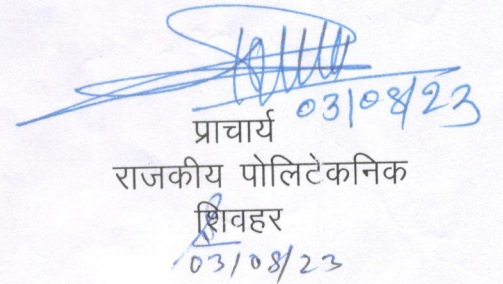 03/08/23
प्राचार्य
राजकीय पोलिटेकनिक
शिवहर
03/08/23